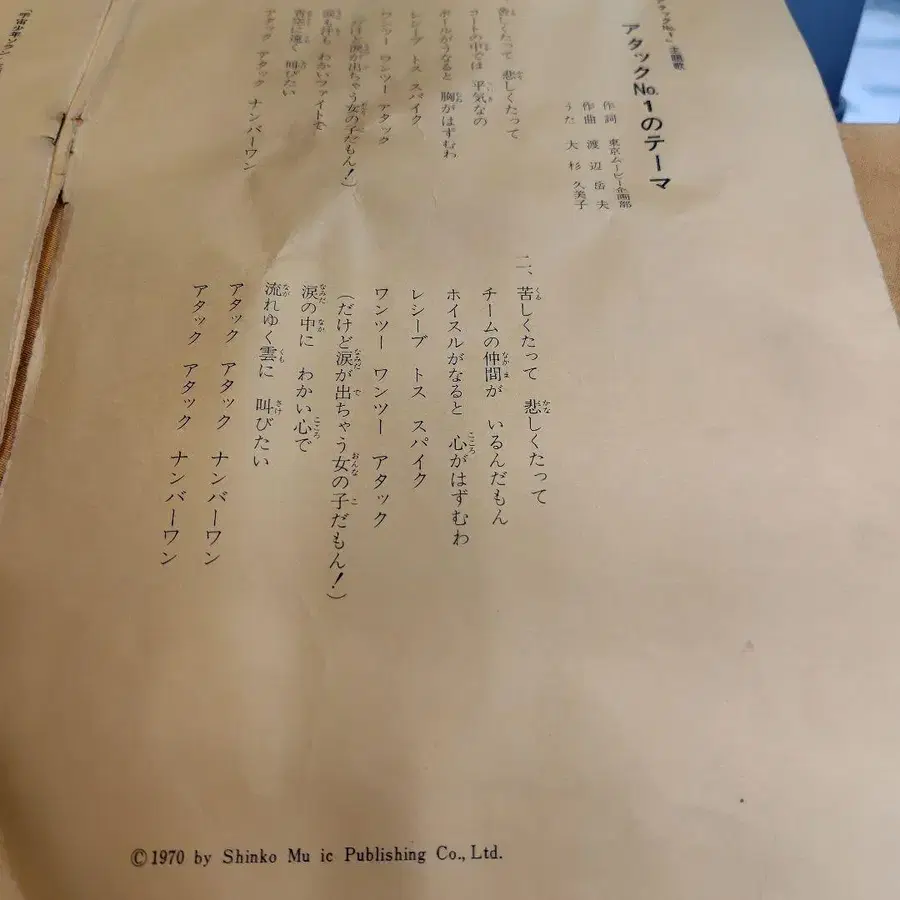 アタックNo.1のテーマ
作詞 東京ムービー企画部
作曲 渡辺岳夫
うた 大杉久美子
苦しくたって 悲しくたって
コートの中では 平気なの
ボールがうなると 胸がはずむわ
レシーブ トス スパイク
ワンツー ワンツー アタック
(だけど涙が出ちゃう女の子だもん!)
涙も汗も わかいファイトで
青空に遠く 叫びたい
アタック アタック ナンバーワン
二、苦しくたって 悲しくたって
チームの仲間が いるんだもん
ホイスルがなると 心がはずむわ
レシーブ トス スパイク
ワンツー ワンツー アタック
(だけど涙が出ちゃう女の子だもん!)
涙の中に わかい心で
流れゆく雲に 叫びたい
アタック アタック ナンバーワン
アタック アタック ナンバーワン
©1970 by Shinko Mu ic Publishing Co., Ltd.